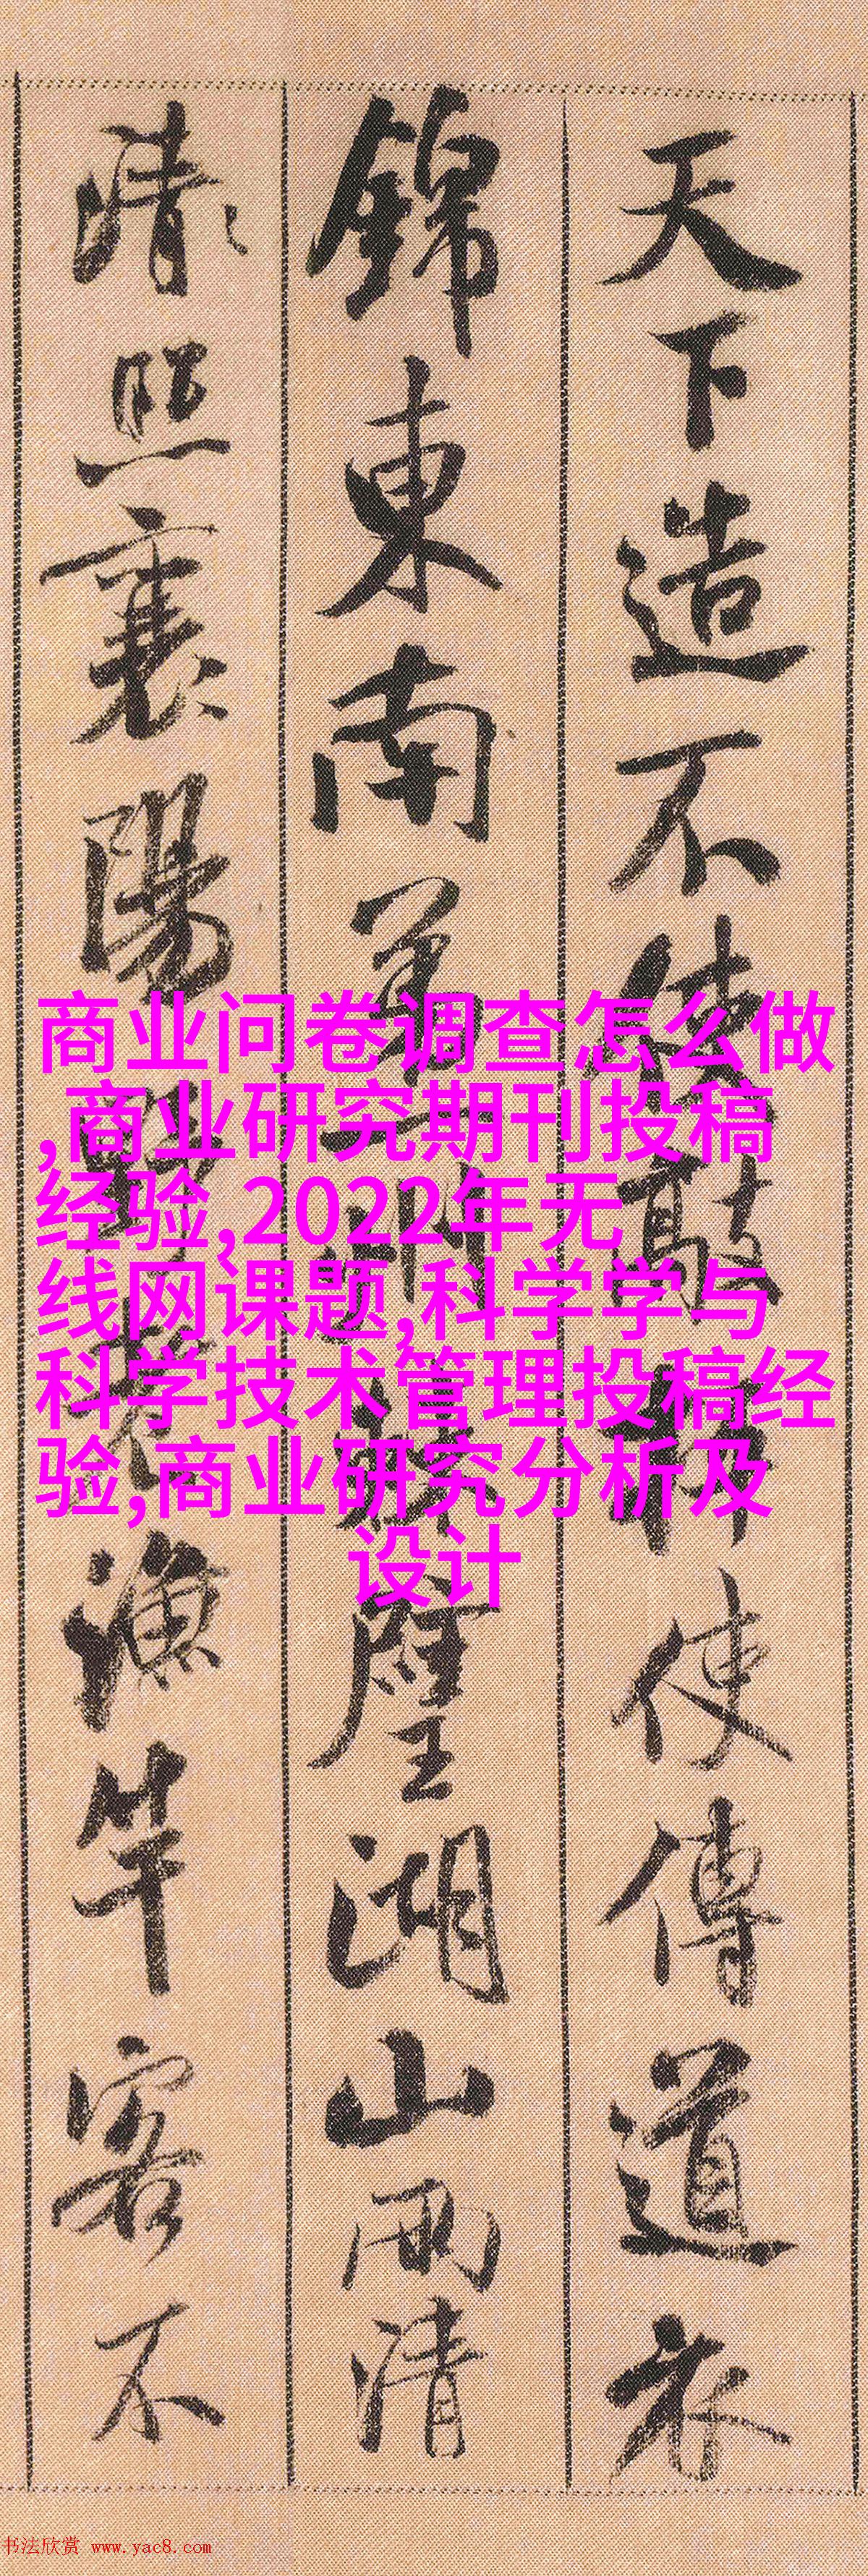 天下造不使敲
使傳道衣
錦東南第一州
壁湖山兩清
清〻照襄陽野老漁竿客不
商业问卷调查怎么做
,商业研究期刊投稿
经验,2022年无
线网课题,科学学与
科学技术管理投稿经
验,商业研究分析及
设计
书法欣赏 www.yac8.com